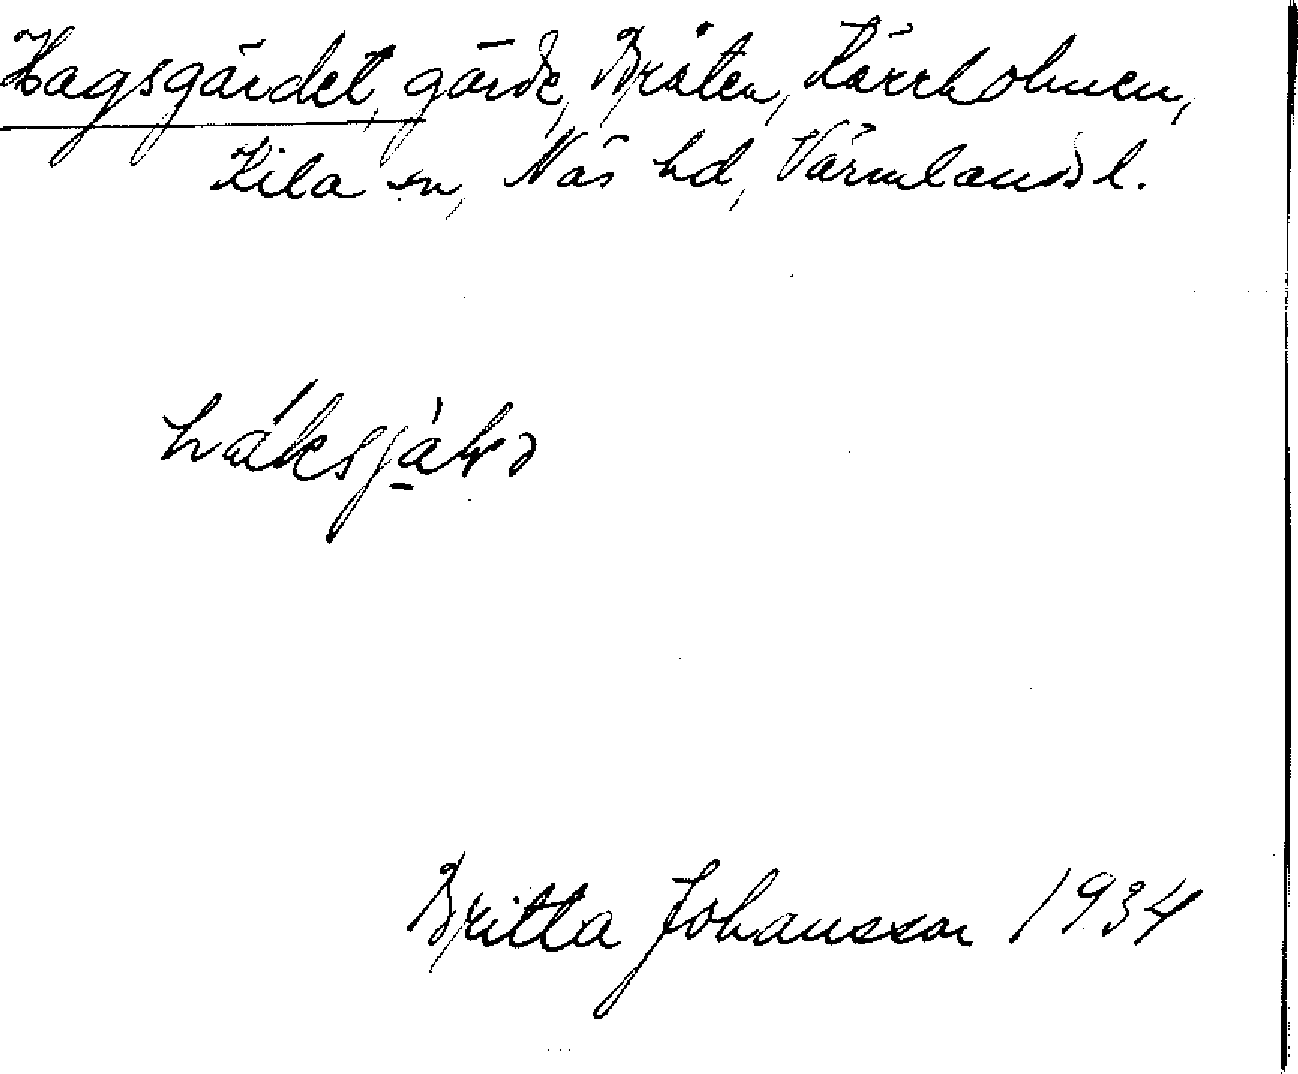 Hagsgärdet, gärde, Bråten, Kärrholmen,
Kila sn, Näs hd, Värmlands l.
Britta Johansson 1934